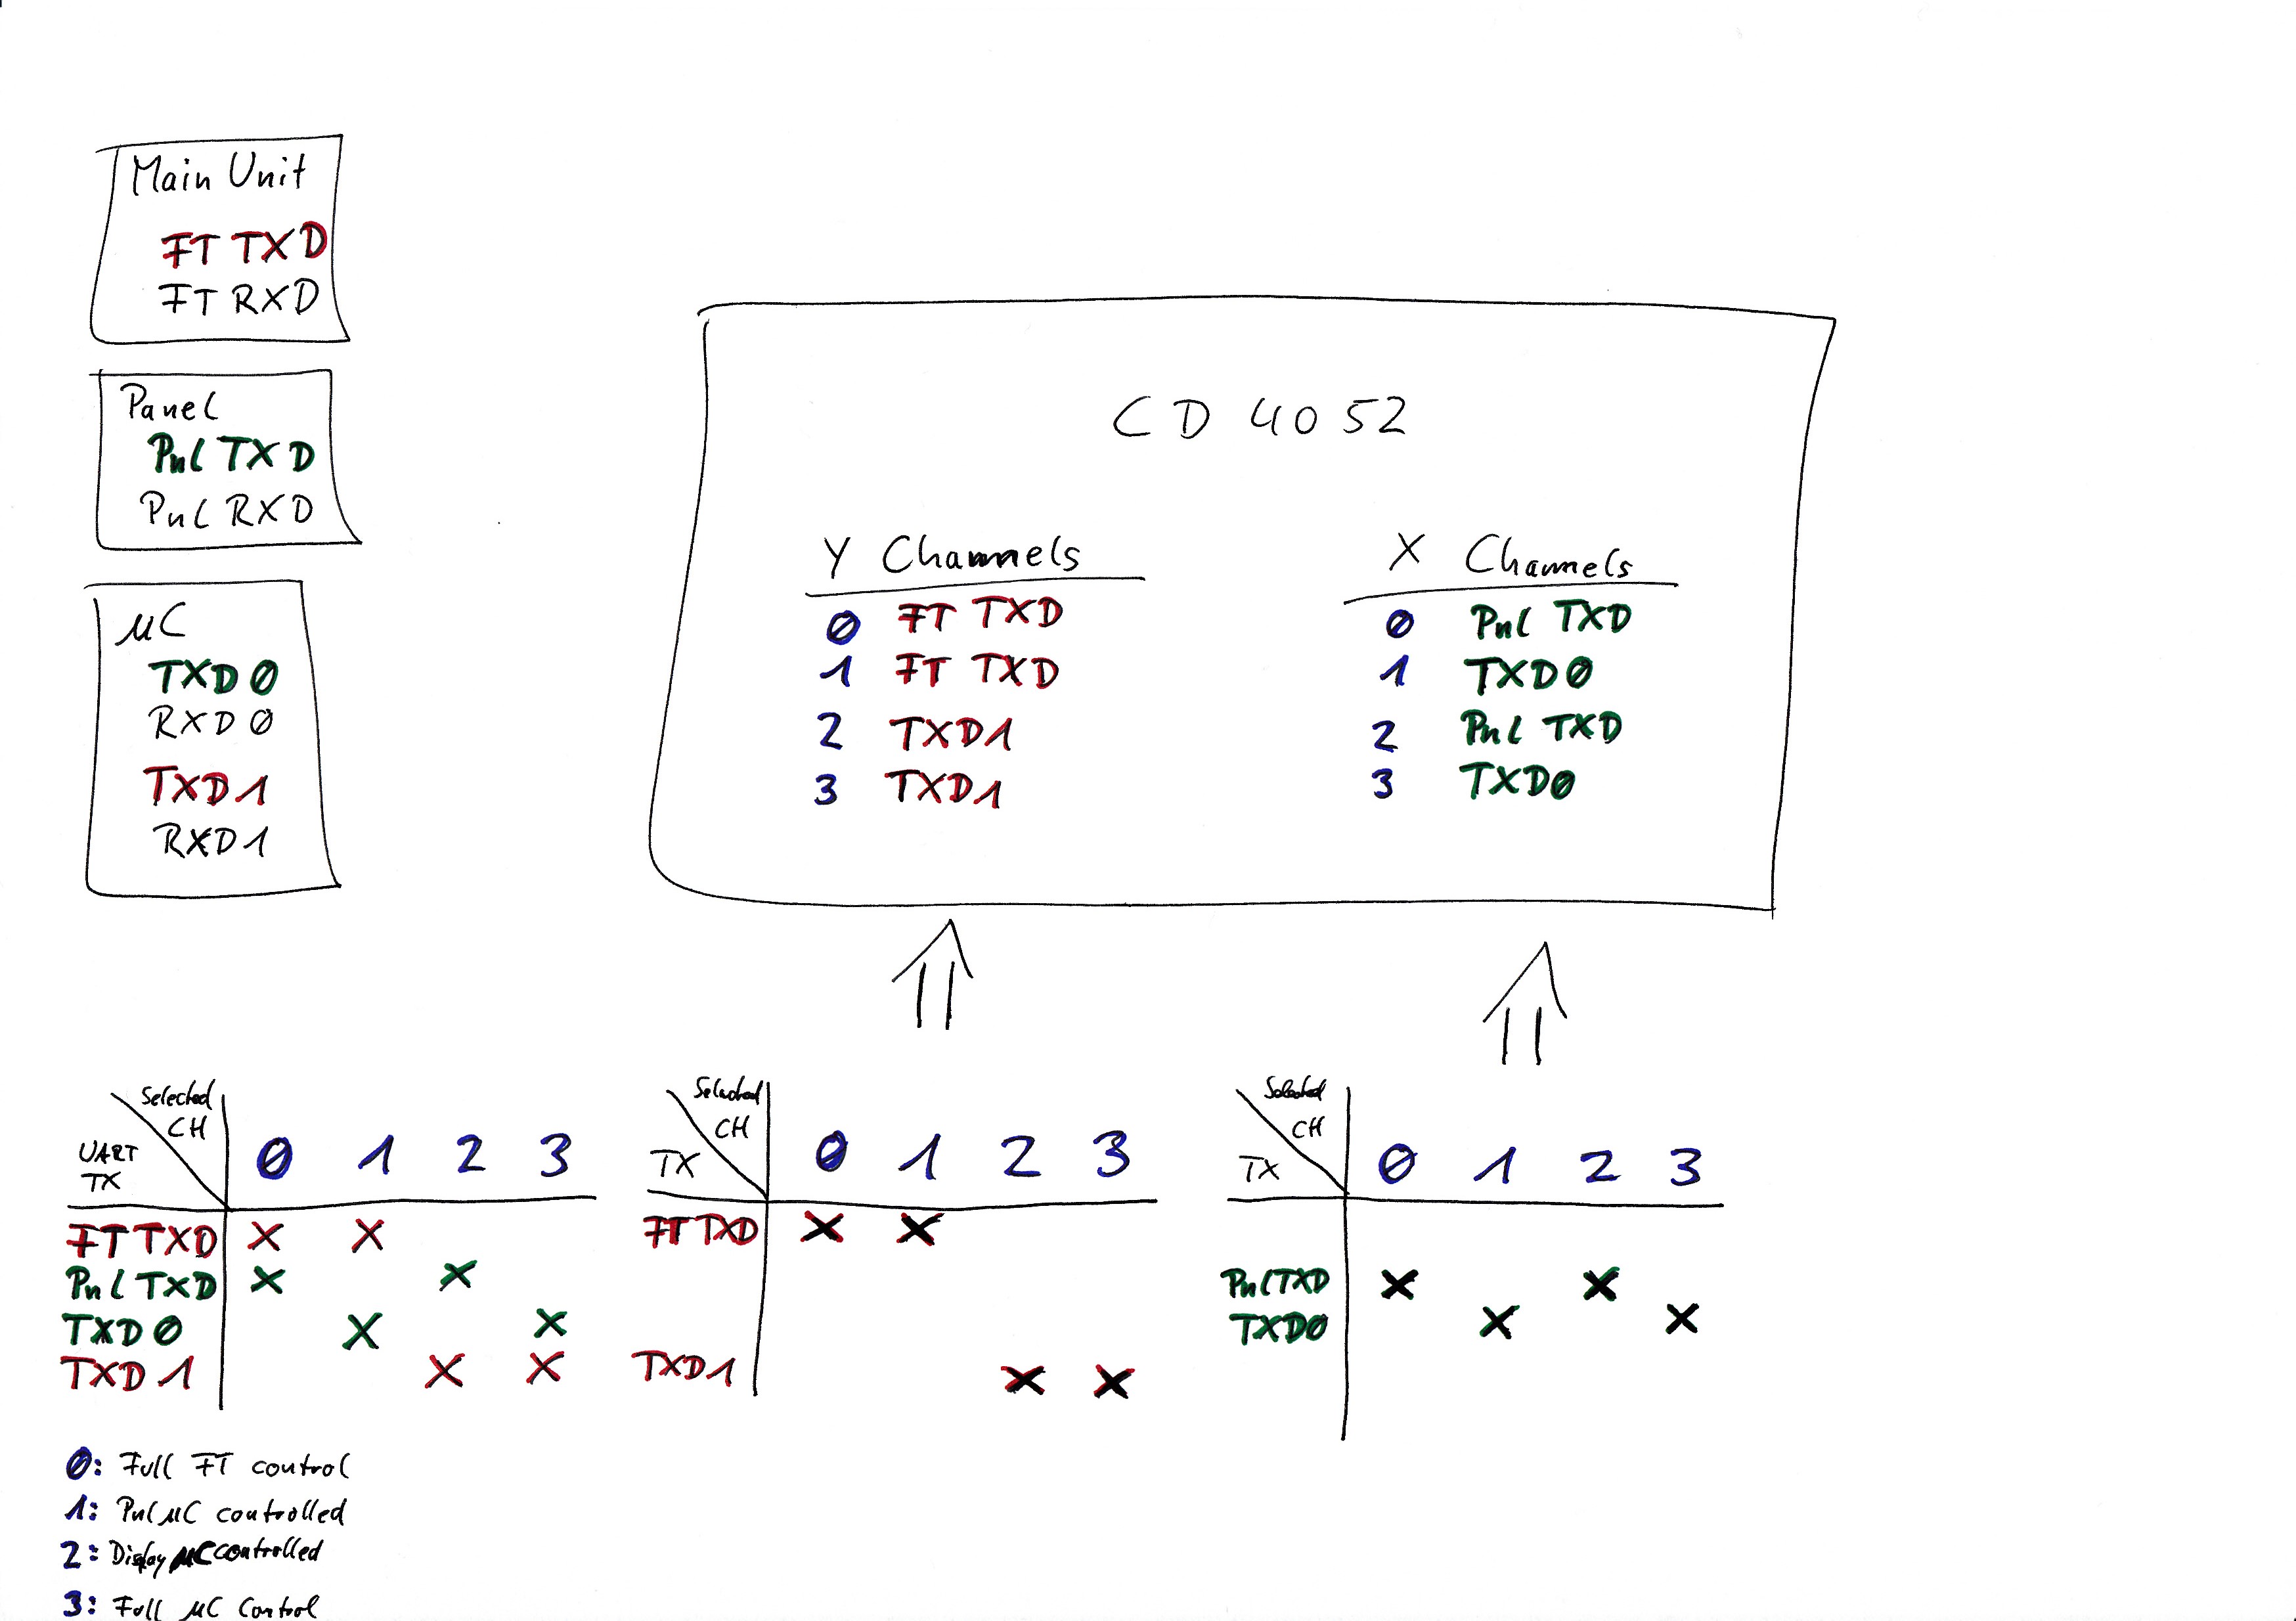 Main Unit
FT TXD
FT RXD
Panel
Pnl TXD
Pnl RXD
µC
TXD0
RXD0
TXD1
RXD1
CD 4052
Y Channels
0 FT TXD
1 FT TXD
2 TXD1
3 TXD1
X Channels
0 Pnl TXD
1 TXD0
2 Pnl TXD
3 TXD0
Selected
CH
UART
TX
0 1 2 3
FT TXD X X
Pnl TXD X X
TXD0 X X
TXD1 X X
Selected
CH
TX
0 1 2 3
FT TXD X X
TXD1 X X
Selected
CH
TX
0 1 2 3
Pnl TXD X X
TXD0 X X
0: Full FT control
1: Pnl µC controlled
2: Display µC controlled
3: Full µC Control